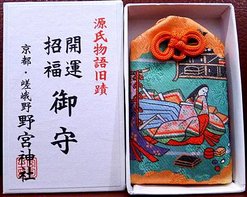 源氏物語旧蹟
開運
招福
御守
京都・嵯峨野
野宮神社